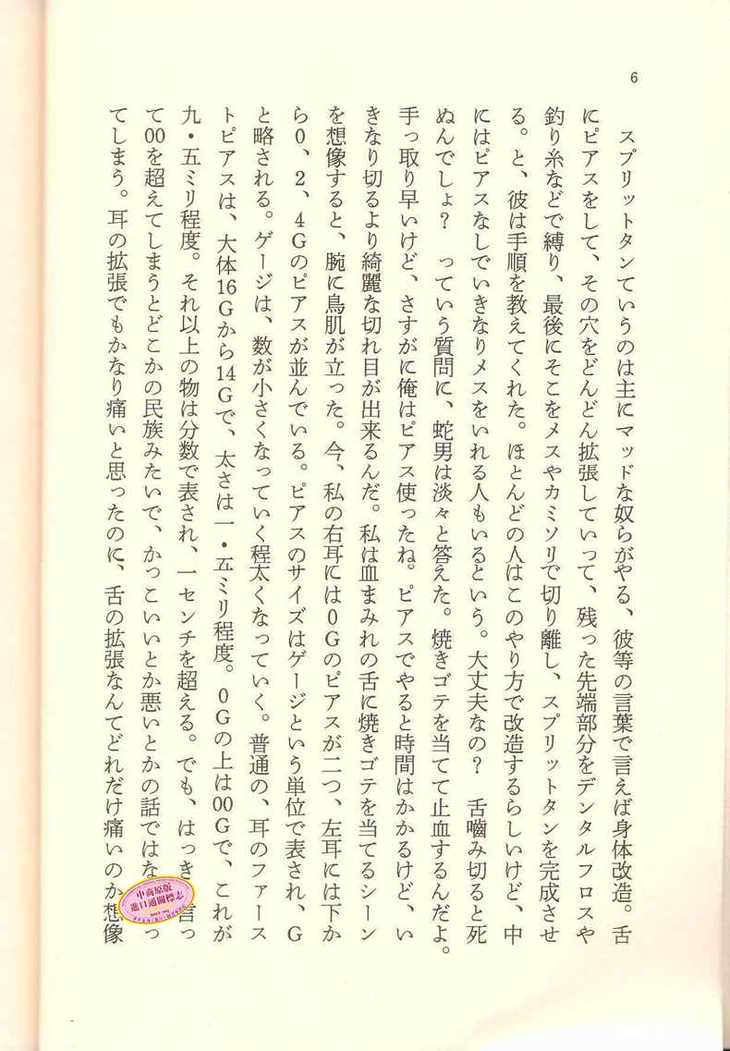 6
スプリットタンていうのは主にマッドな奴らがやる、彼等の言葉で言えば身体改造。舌
にピアスをして、その穴をどんどん拡張していって、残った先端部分をデンタルフロスや
釣り糸などで縛り、最後にそこをメスやカミソリで切り離し、スプリットタンを完成させ
る。と、彼は手順を教えてくれた。ほとんどの人はこのやり方で改造するらしいけど、中
にはピアスなしでいきなりメスをいれる人もいるという。大丈夫なの？　舌嚙み切ると死
ぬんでしょ？　っていう質問に、蛇男は淡々と答えた。焼きゴテを当てて止血するんだよ。
手っ取り早いけど、さすがに俺はピアス使ったね。ピアスでやると時間はかかるけど、い
きなり切るより綺麗な切れ目が出来るんだ。私は血まみれの舌に焼きゴテを当てるシーン
を想像すると、腕に鳥肌が立った。今、私の右耳には0Gのピアスが二つ、左耳には下か
ら0、2、4Gのピアスが並んでいる。ピアスのサイズはゲージという単位で表され、G
と略される。ゲージは、数が小さくなっていく程太くなっていく。普通の、耳のファース
トピアスは、大体16Gから14Gで、太さは一・五ミリ程度。0Gの上は00Gで、これが
九・五ミリ程度。それ以上の物は分数で表され、一センチを超える。でも、はっき言っ
て00を超えてしまうとどこかの民族みたいで、かっこいいとか悪いとかの話ではなっ
てしまう。耳の拡張でもかなり痛いと思ったのに、舌の拡張なんてどれだけ痛いのか想像
中商原版
進口通關標志